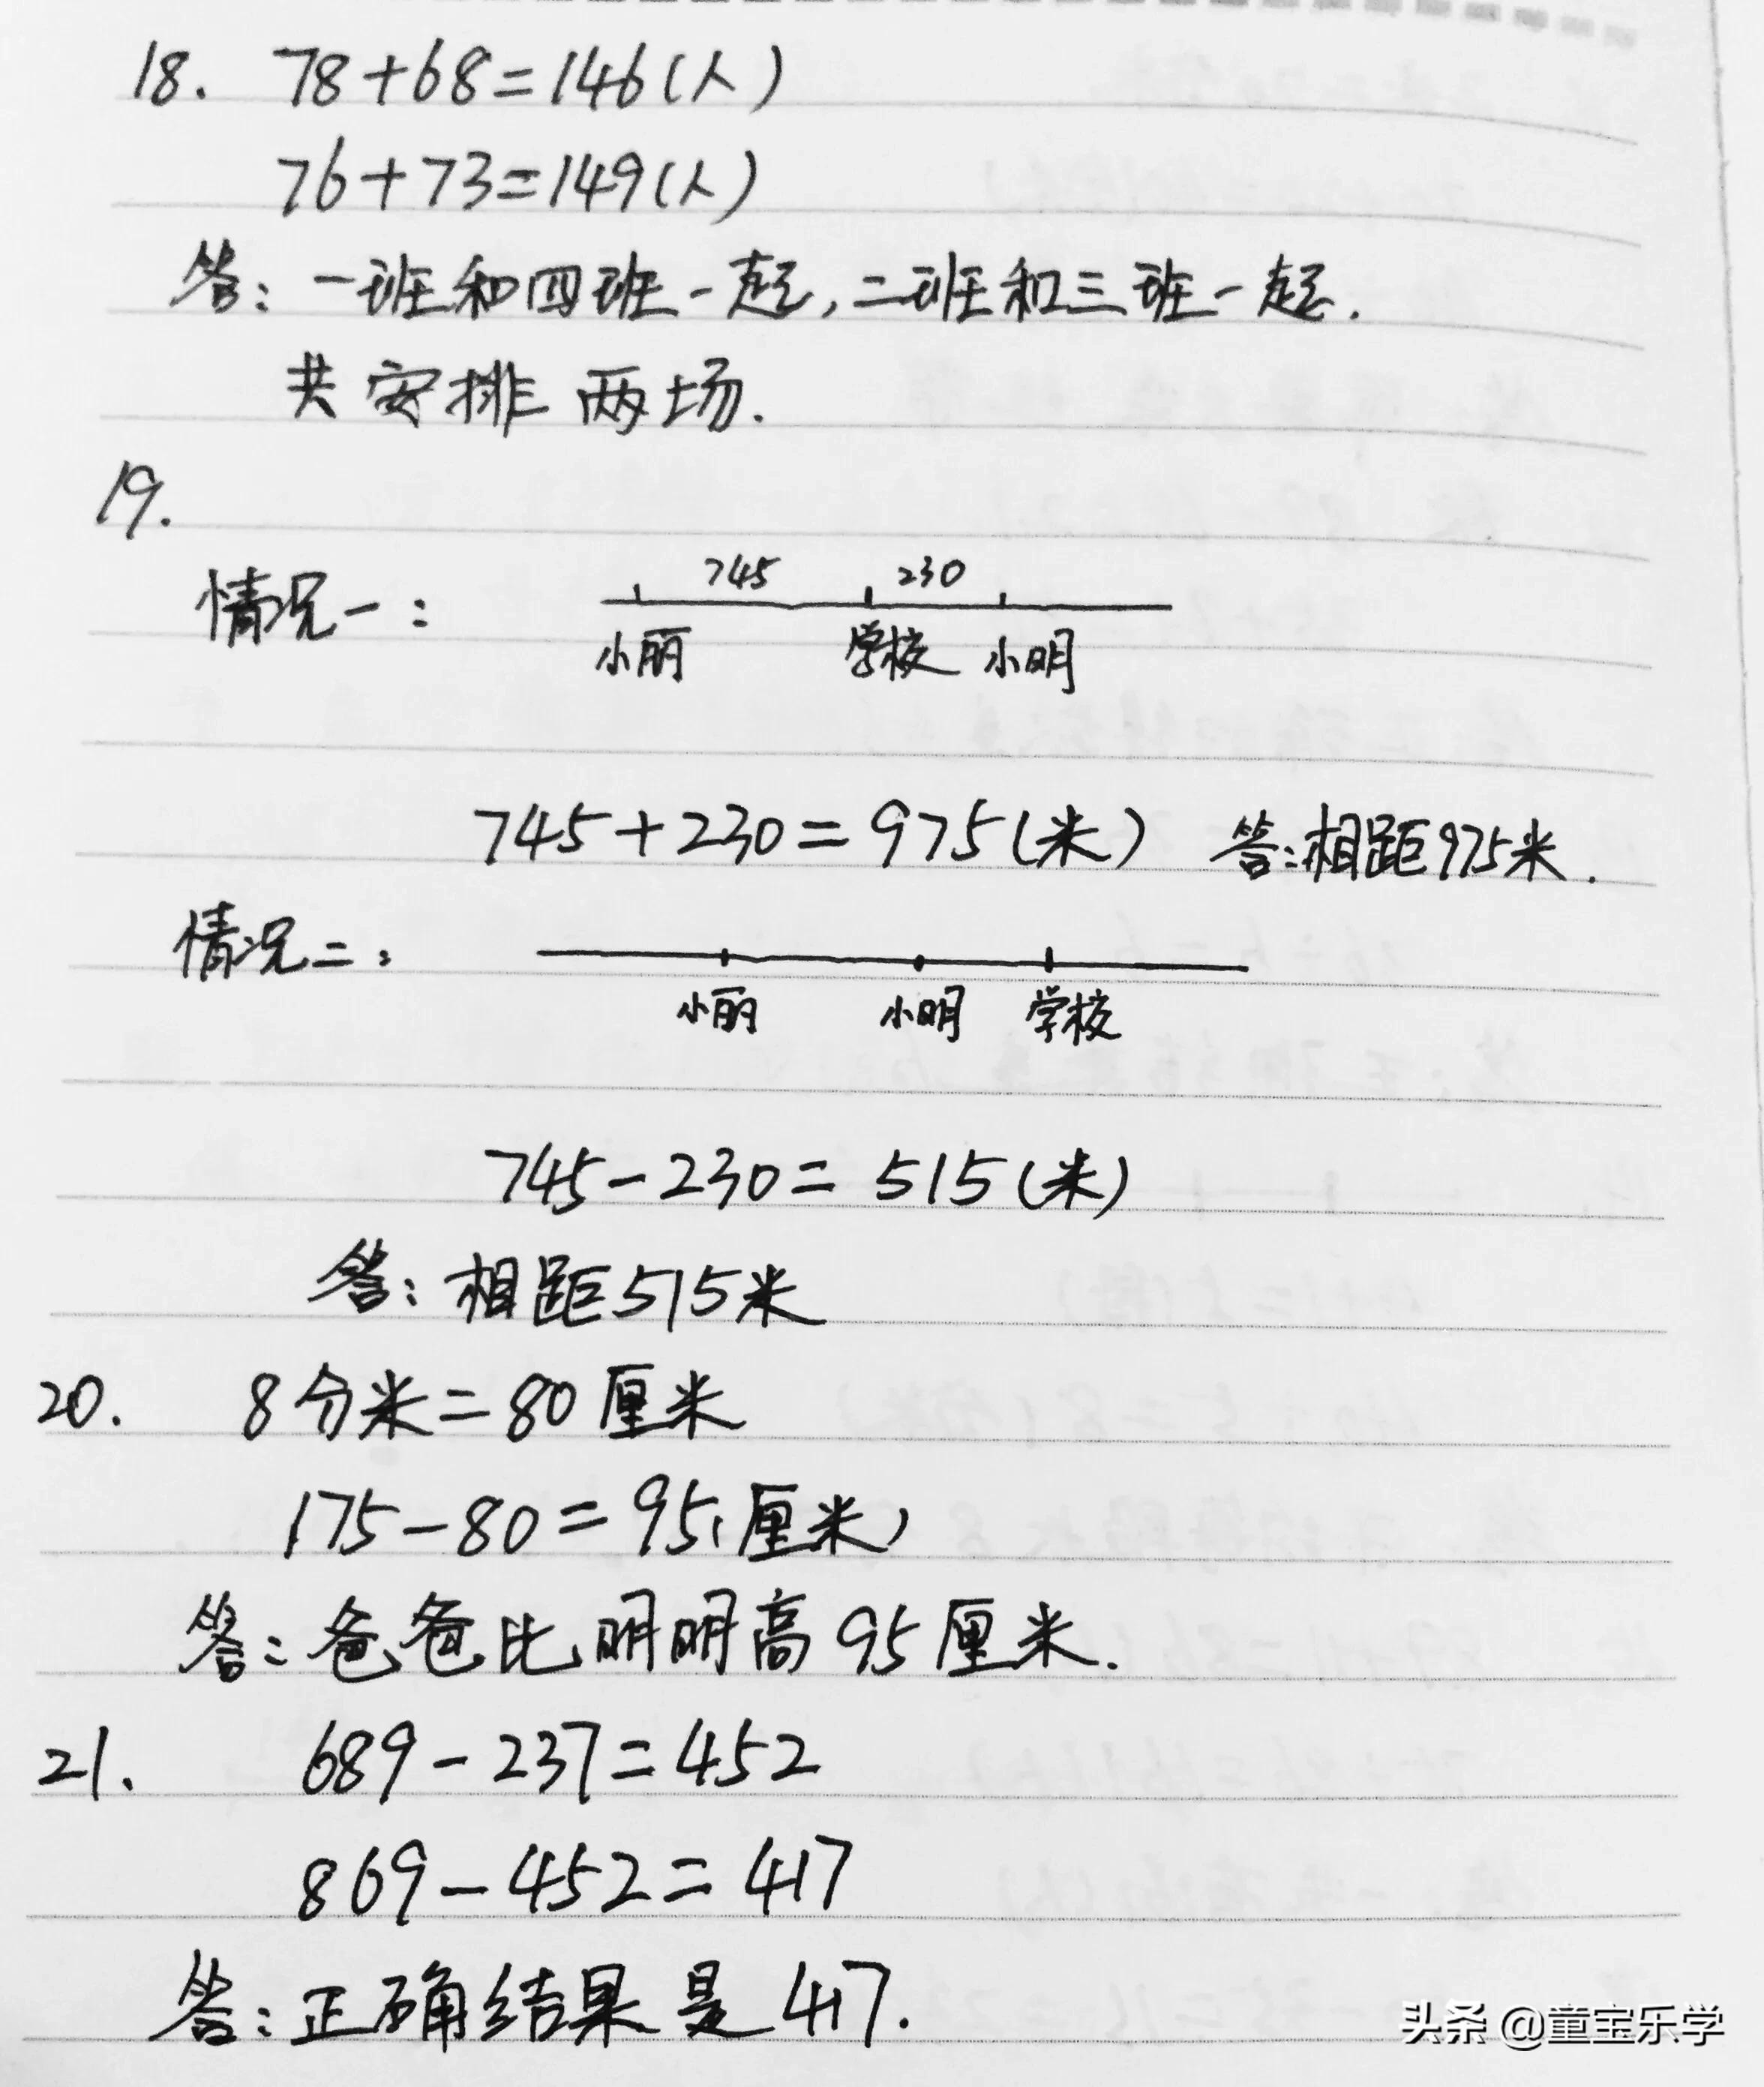 18. 78+68=146(人)
76+73=149(人)
答:一班和四班一起,二班和三班一起.
共安排两场.
19.
情况一: 745 230
小丽 学校 小明
745+230=975(米) 答:相距975米.
情况二:
小丽 小明 学校
745-230=515(米)
答:相距515米
20. 8分米=80厘米
175-80=95(厘米)
答:爸爸比明明高95厘米.
21. 689-237=452
869-452=417
答:正确结果是417.
头条 @童宝乐学